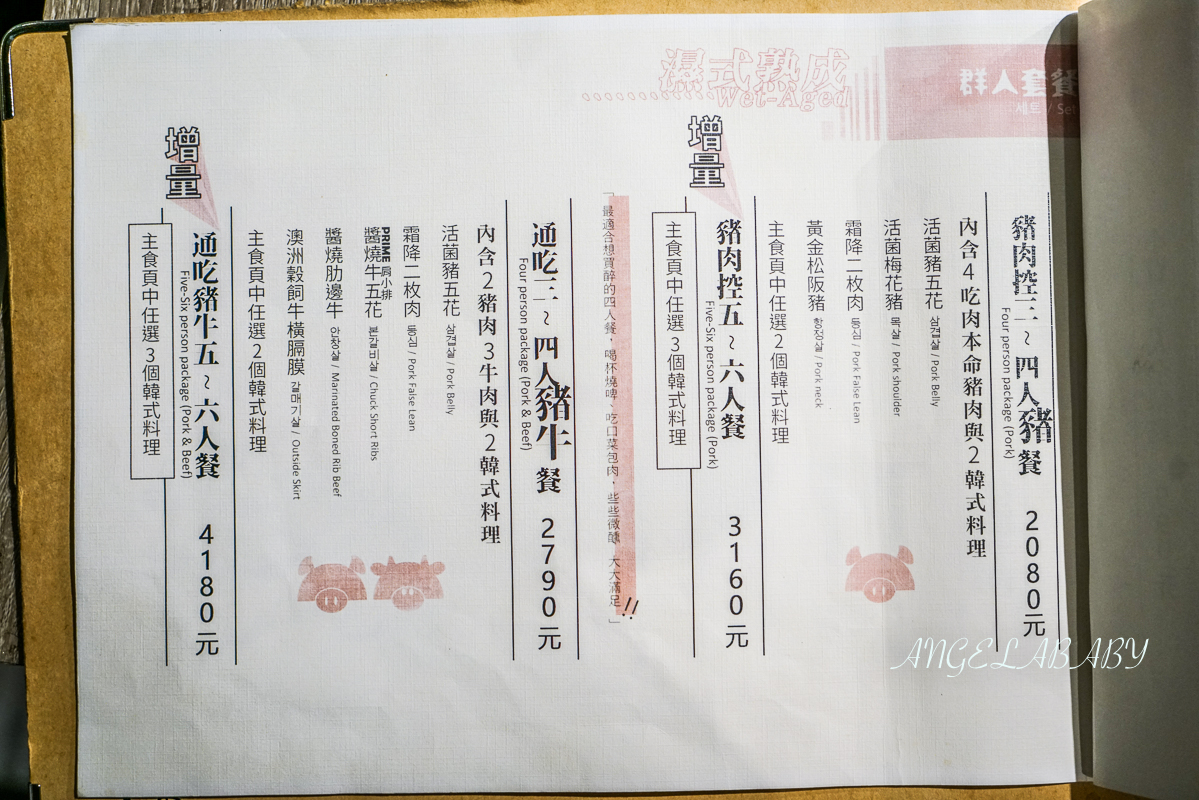 群人套餐
세트 / Set
濕式熟成
Wet-Aged
豬肉控三～四人豬餐 2080元
Four person package (Pork)
內含4吃肉本命豬肉與2韓式料理
活菌豬五花 삼겹살 / Pork Belly
活菌梅花豬 목살 / Pork shoulder
霜降二枚肉 뒷덜미 / Pork False Lean
黃金松阪豬 항정살 / Pork neck
主食頁中任選2個韓式料理
增量
豬肉控五～六人餐 3160元
Five-Six person package (Pork)
主食頁中任選3個韓式料理
「最適合想買醉的四人餐，喝杯燒啤、吃口菜包肉，些些微醺、大大滿足!!」
通吃三～四人豬牛餐 2790元
Four person package (Pork & Beef)
內含2豬肉3牛肉與2韓式料理
活菌豬五花 삼겹살 / Pork Belly
霜降二枚肉 / Pork False Lean
PRIME肩小排
醬燒牛五花 본갈비살 / Chuck Short Ribs
醬燒肋邊牛 안창살 / Marinated Boned Rib Beef
澳洲穀飼牛橫膈膜 갈매기살 / Outside Skirt
主食頁中任選2個韓式料理
增量
通吃豬牛五～六人餐 4180元
Five-Six person package (Pork & Beef)
主食頁中任選3個韓式料理
ANGELABABY